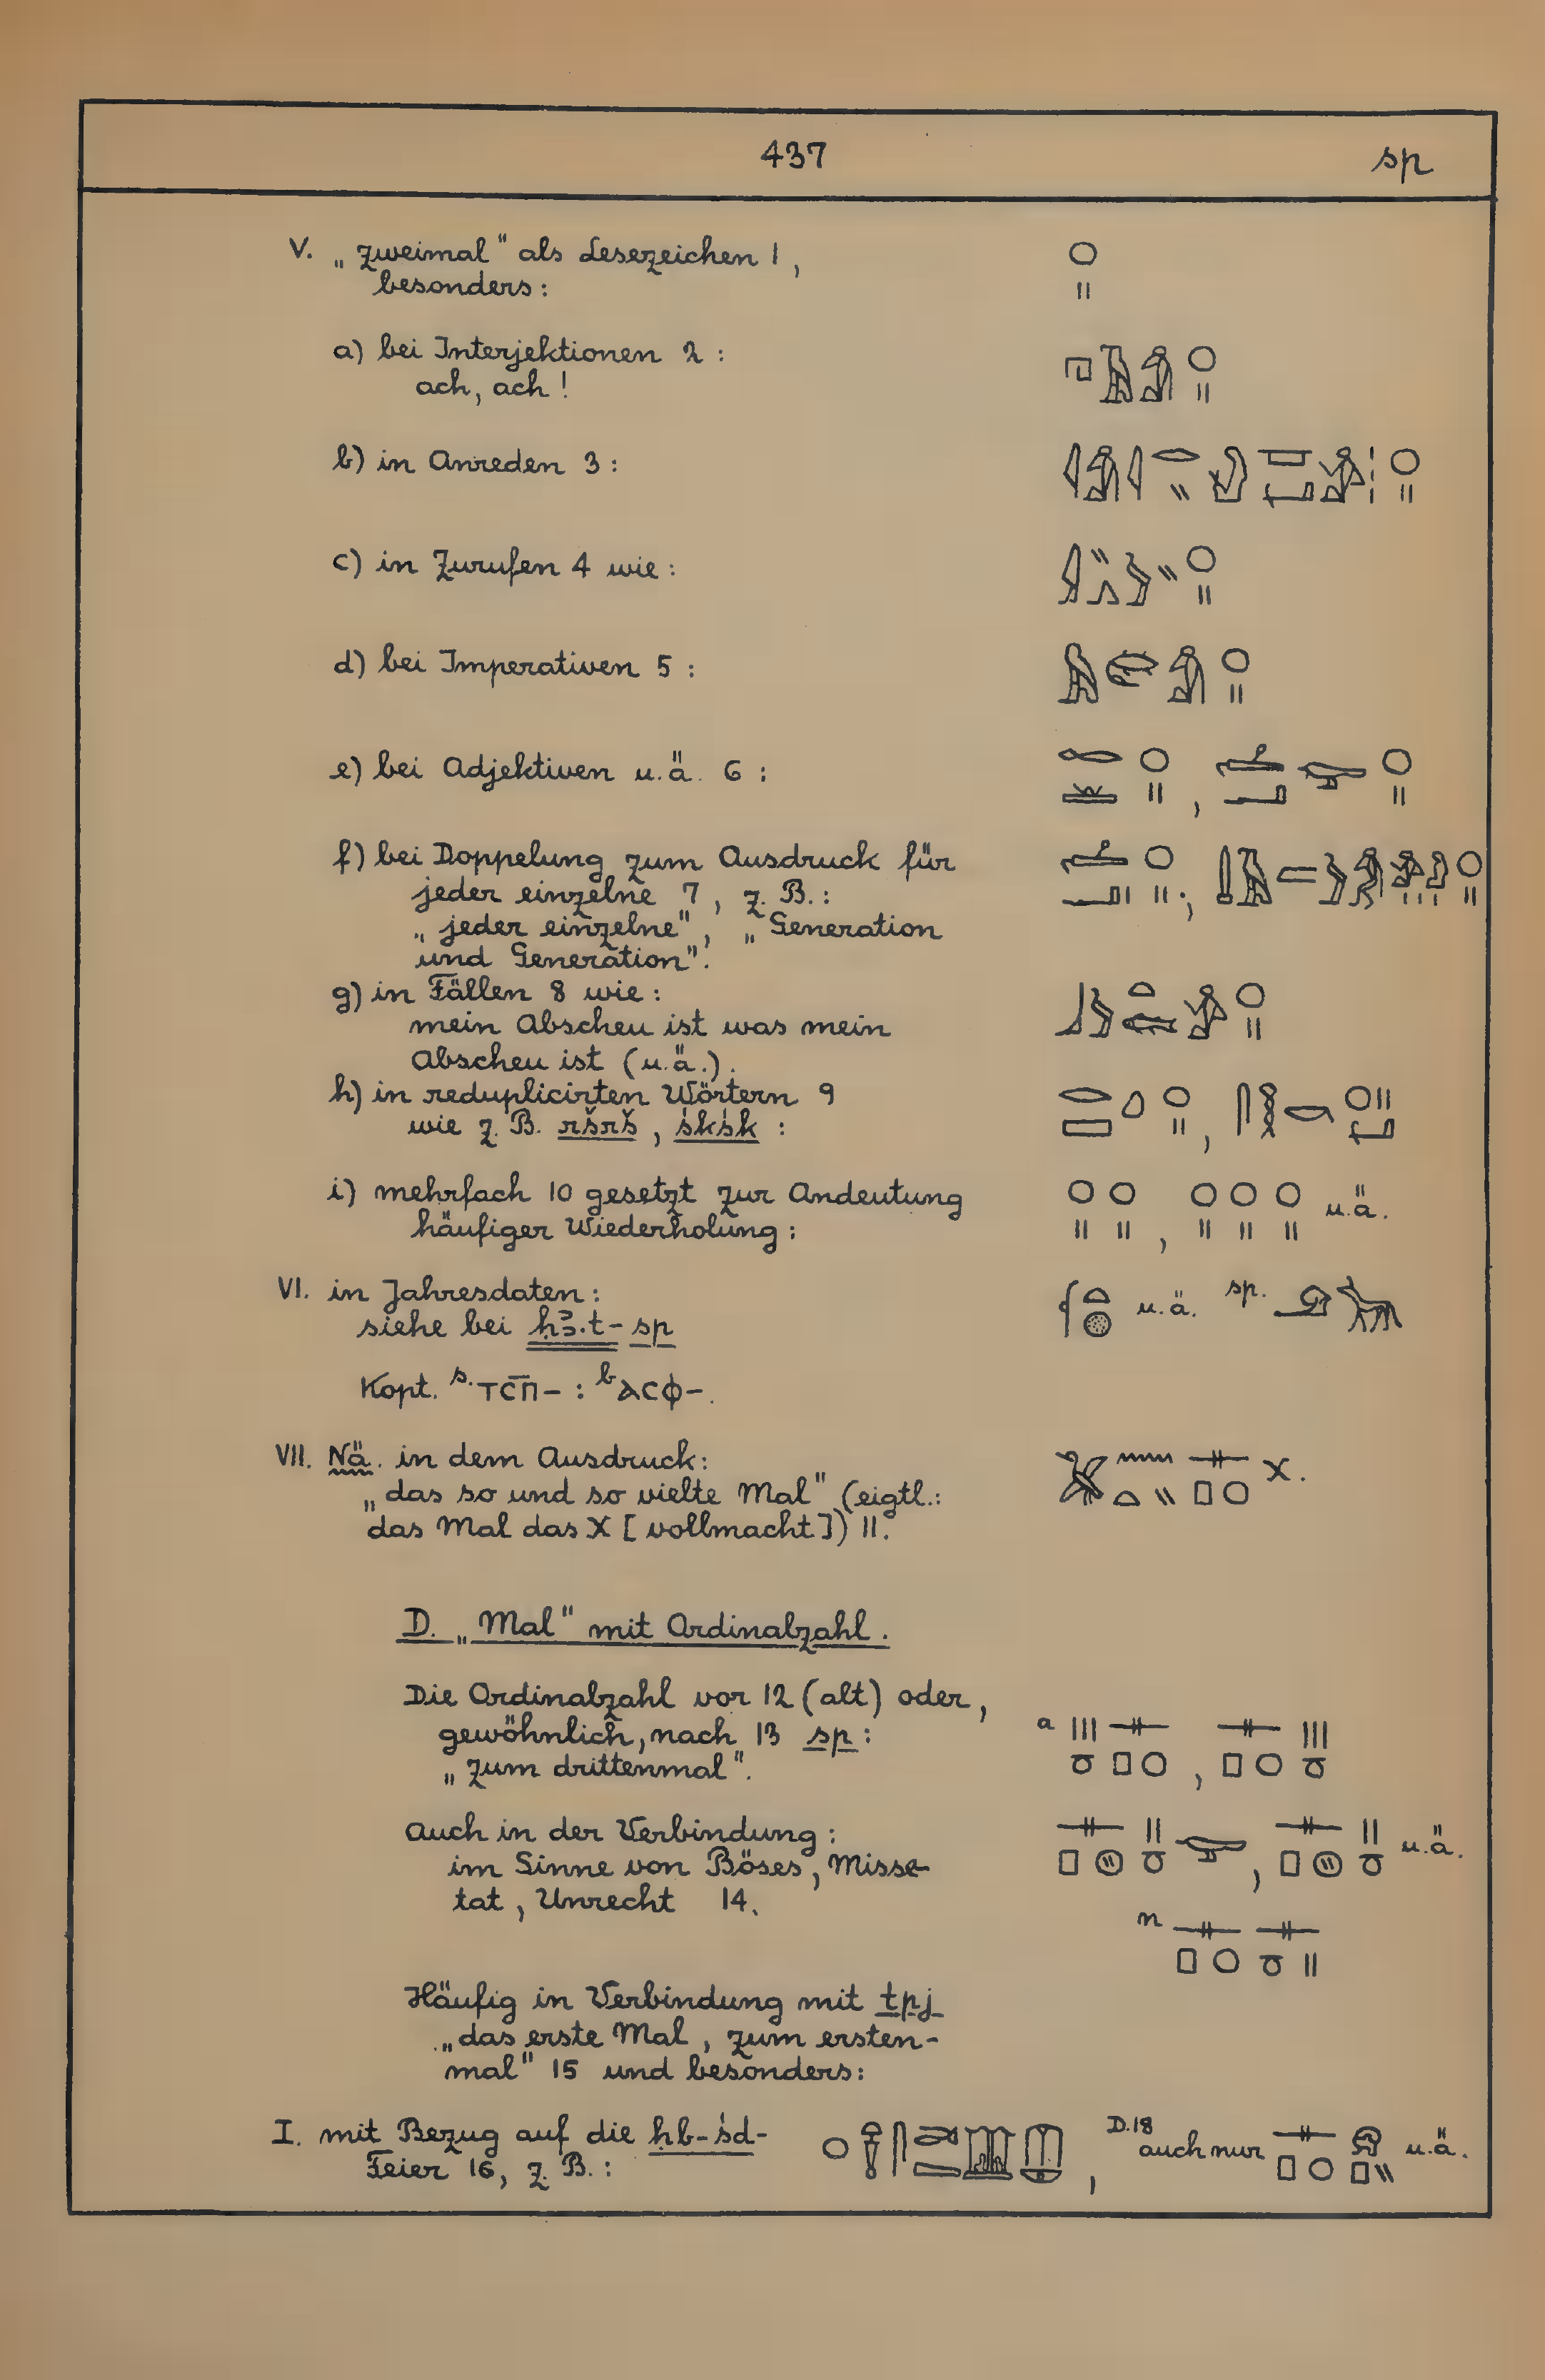 437 sp
V. „zweimal“ als Lesezeichen 1,
besonders:
a) bei Interjektionen 2:
ach, ach!
b) in Anreden 3:
c) in Zurufen 4 wie:
d) bei Imperativen 5:
e) bei Adjektiven u.ä. 6:
f) bei Doppelung zum Ausdruck für
jeder einzelne 7, z. B.:
„jeder einzelne“, „Generation
und Generation“.
g) in Fällen 8 wie:
mein Abscheu ist was mein
Abscheu ist (u.ä.).
h) in reduplicirten Wörtern 9
wie z. B. ršrš, śkśk:
i) mehrfach 10 gesetzt zur Andeutung u.ä.
häufiger Wiederholung:
VI. in Jahresdaten: u.ä. sp.
siehe bei ḥꜣ.t-sp
Kopt. s. ⲧⲥⲡ̅- : b ⲁⲥⲫ-.
VII. Nä. in dem Ausdruck: X.
„das so und so vielte Mal“ (eigtl.:
das Mal das X [vollmacht]) 11.
D. „Mal“ mit Ordinalzahl.
Die Ordinalzahl vor 12 (alt) oder,
gewöhnlich, nach 13 sp: a
„zum drittenmal“.
Auch in der Verbindung: u.ä.
im Sinne von Böses, Misse-
tat, Unrecht 14. n
Häufig in Verbindung mit tpj
„das erste Mal, zum ersten-
mal“ 15 und besonders:
I. mit Bezug auf die ḥb-śd- D.18 auch nur u.ä.
Feier 16, z. B.: